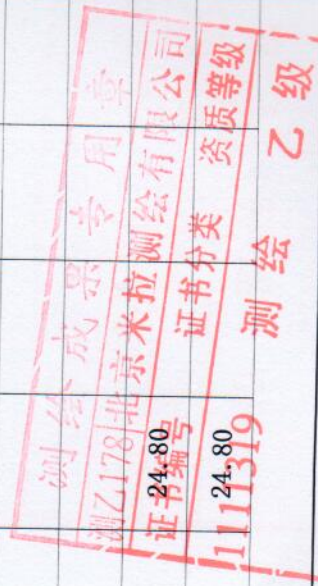 测绘成果专用章
测乙178|北京米拉测绘有限公司
证书编号 证书分类 资质等级
24.80
1111319 测绘 乙级
24.80